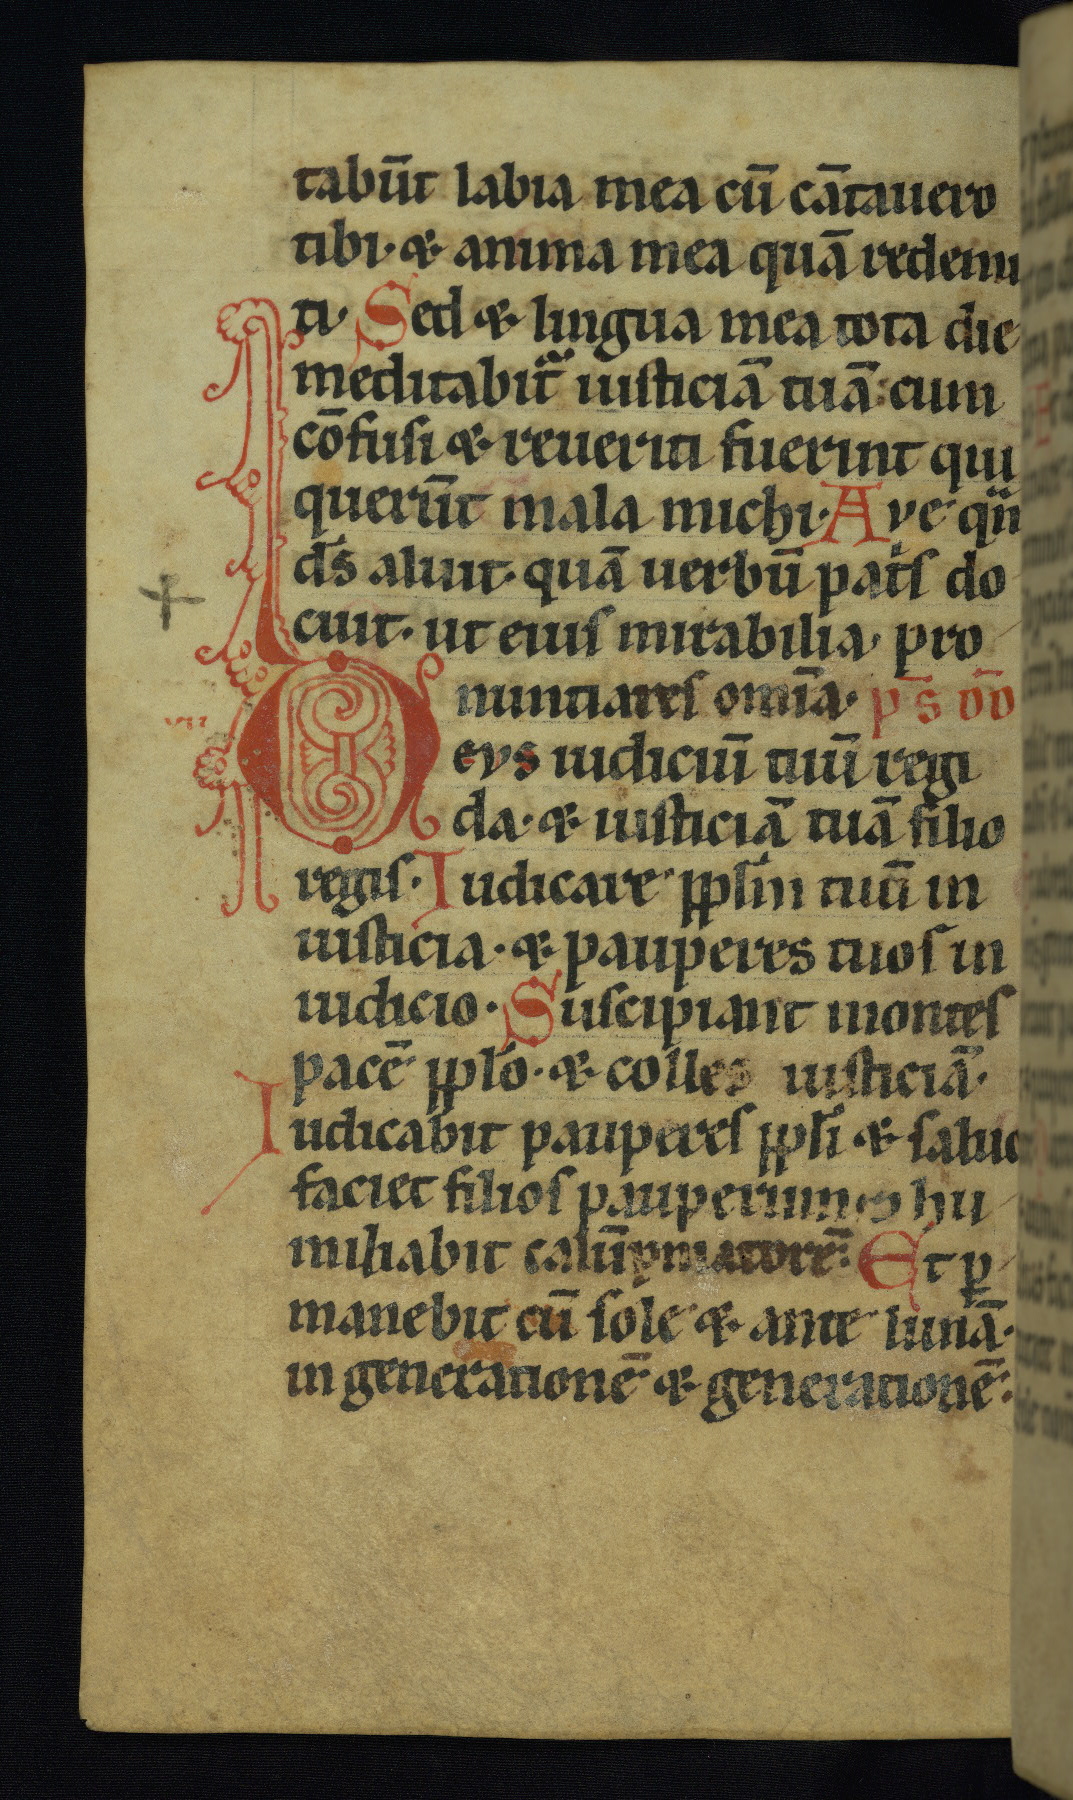 tabūt labia mea cū cātauero
tibi· & anima mea quā redemi
ti· Sed & lingua mea tota die
meditabit᷑ iusticiā tuā: cum
cōfusi & reueriti fuerint qui
querūt mala michi· Aue quā
ds̄ aluit· quā uerbū pat̄s do
cuit· ut eius mirabilia· pro
nuntiares om̄ia· ps̄ dd̄
vii
Deus iudiciū tuū regi
da· & iusticiā tuā filio
regis· Iudicare pplm̄ tuū in
iusticia· & pauperes tuos in
iudicio· Suscipiant montes
pacē pplo̅· & colles iusticiā·
Iudicabit pauperes ppli̅ & saluo
faciet filios pauperum & hu
miliabit calūpniatorē: Et ꝑ
manebit cū sole & ante lunā·
in generationē & generationē: